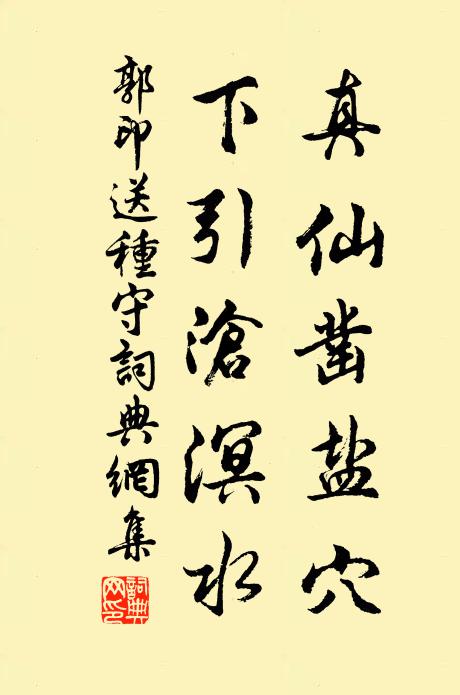 真仙凿盐穴
下引滄溟水
郭印送種守詞典網集
詞典網印